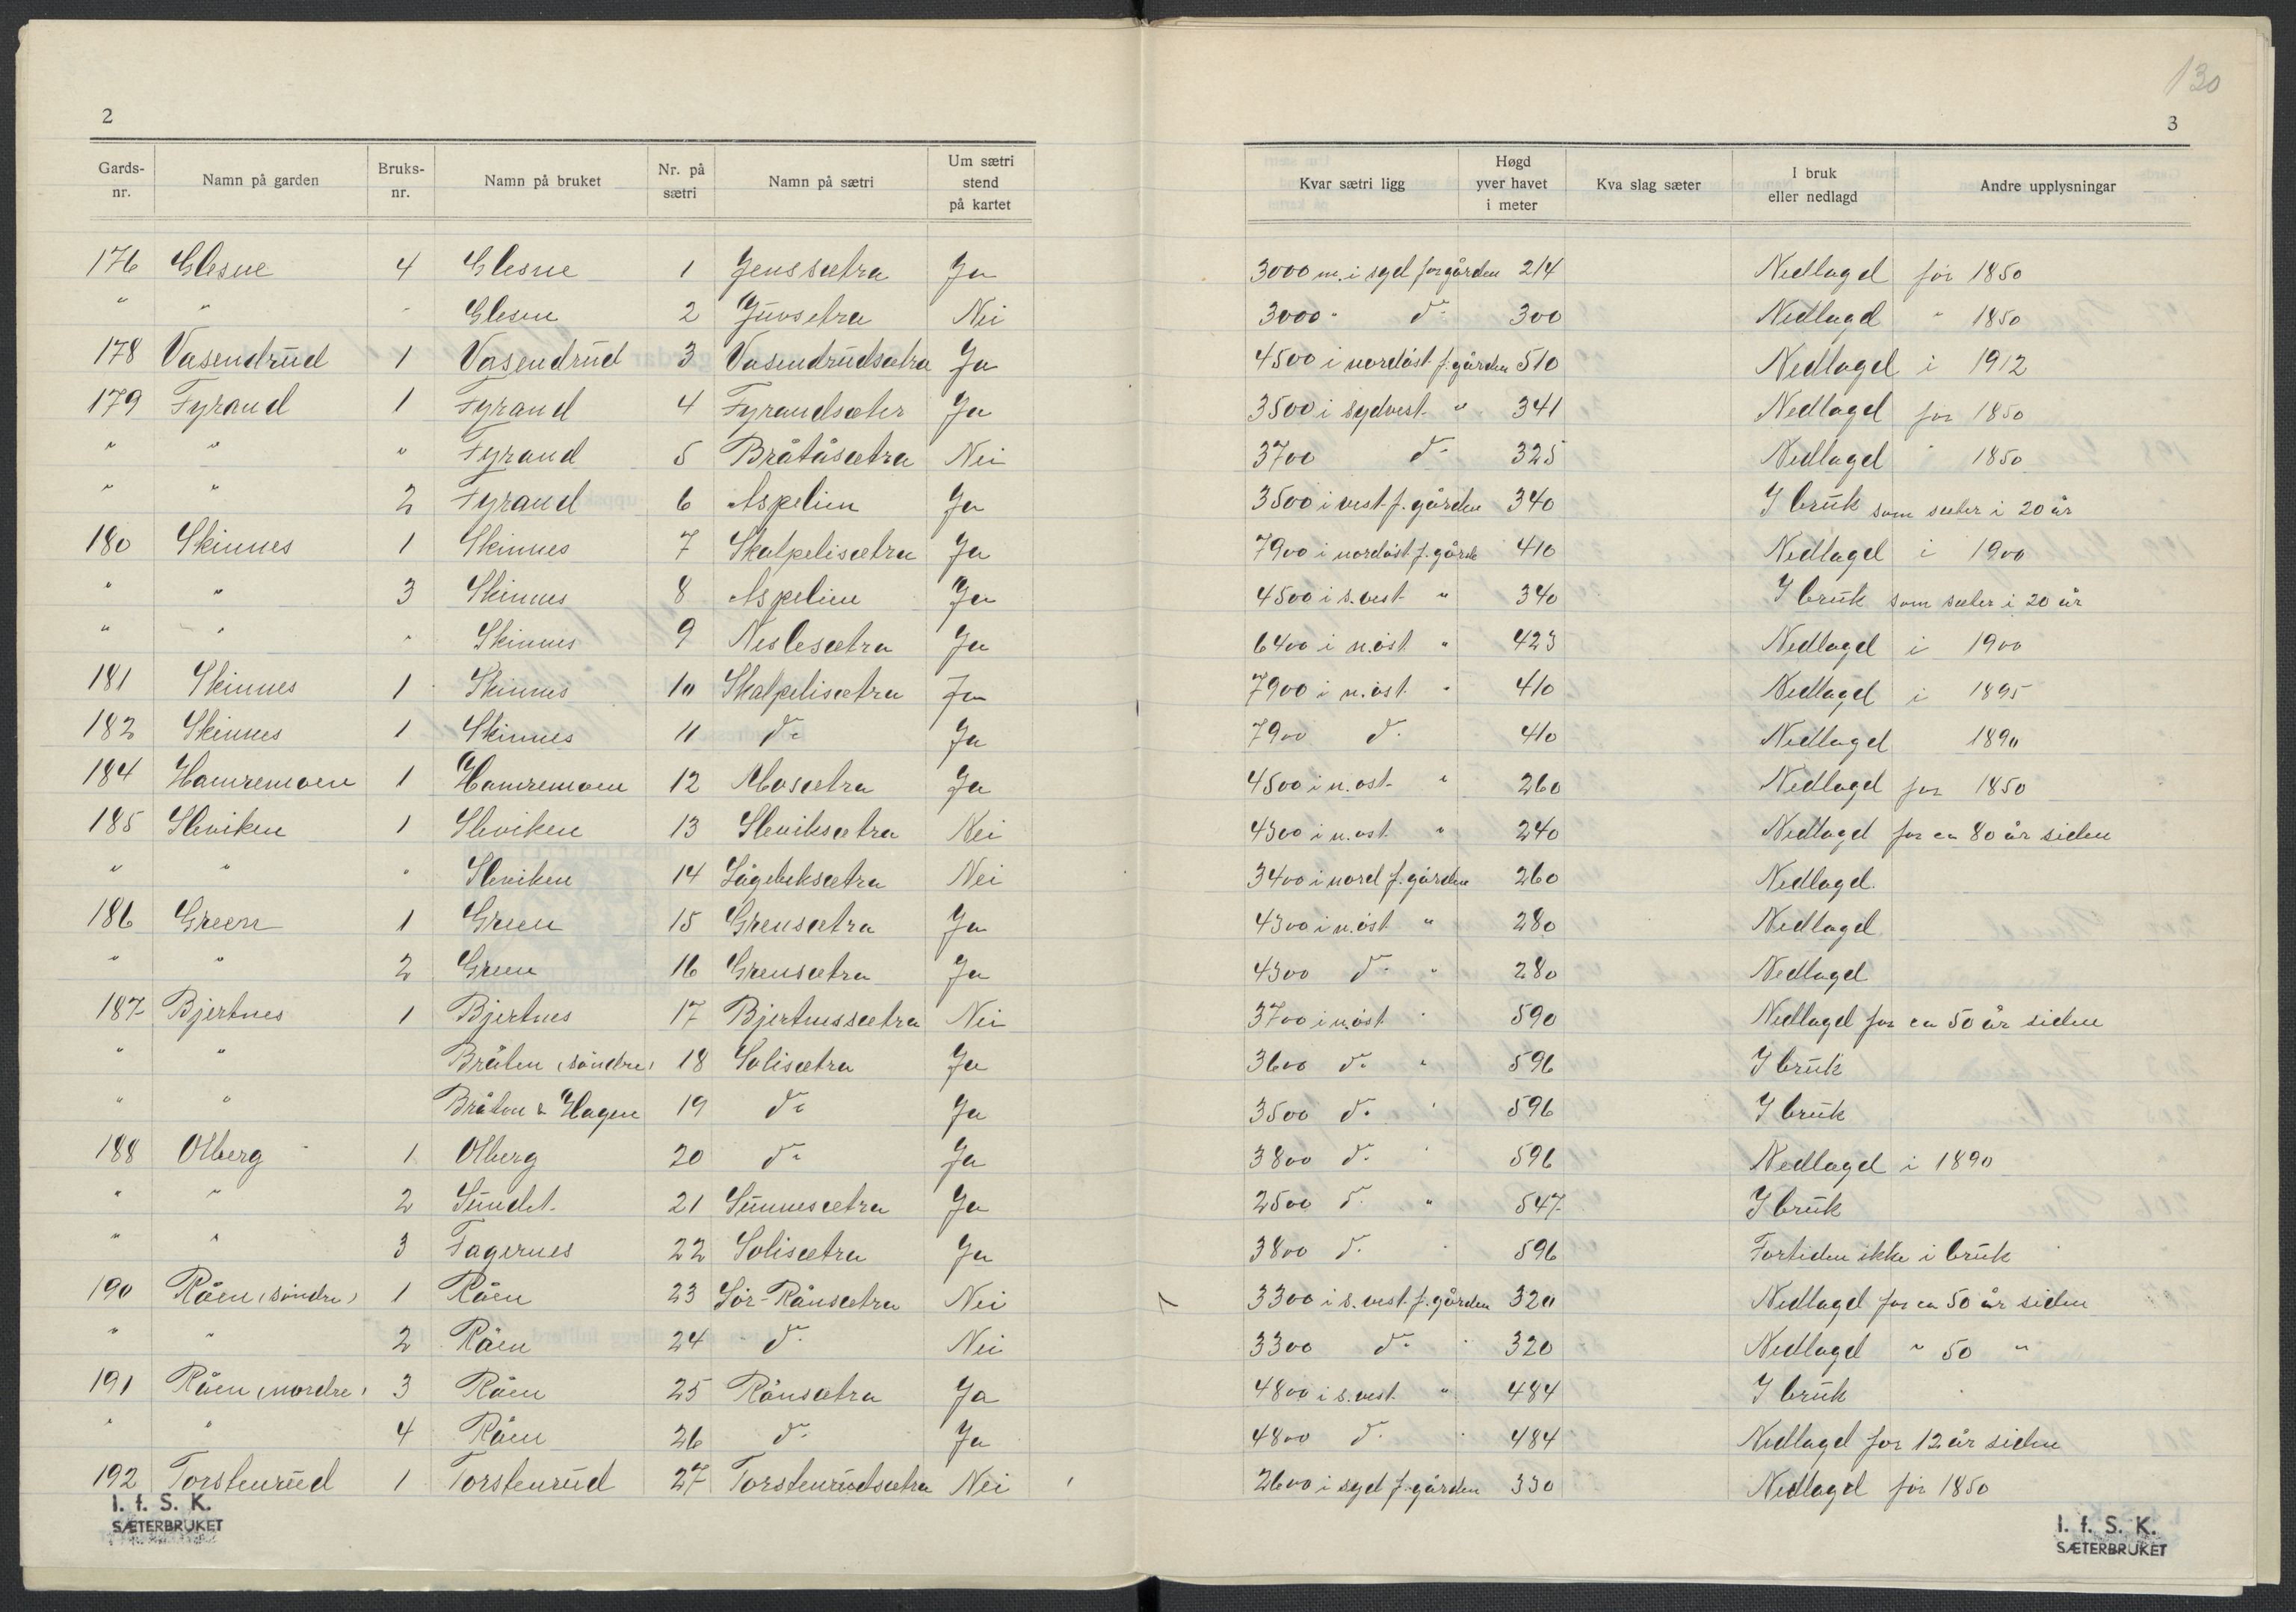 130
2
3
Gards-nr. Namn på garden Bruks-nr. Namn på bruket Nr. på sætri Namn på sætri Um sætri stend på kartet Kvar sætri ligg Høgd yver havet i meter Kva slag sæter I bruk eller nedlagd Andre upplysningar
176 Glesne 4 Glesne 1 Jenssætra Ja 3000 m. i syd for gården 214 Nedlagd før 1850
" " " Glesne 2 Juvsetra Nei 3000 " do 300 Nedlagd " 1850
178 Vasendrud 1 Vasendrud 3 Vasendrudsætra Ja 4500 i nordøst f. gården 510 Nedlagd i 1912
179 Fyrand 1 Fyrand 4 Fyrandsæter Ja 3500 i sydvest " 341 Nedlagd før 1850
" " " Fyrand 5 Bråtåsætra Nei 3700 do 325 Nedlagd " 1850
" " 2 Fyrand 6 Aspelien Ja 3500 i vest f. gården 340 I bruk som sæter i 20 år
180 Skinnes 1 Skinnes 7 Skalpelisætra Ja 7900 i nordøst f. gården 410 Nedlagd i 1900
" " 3 Skinnes 8 Aspelien Ja 4500 i s. vest " 340 I bruk som sæter i 20 år
" " " Skinnes 9 Neslesætra Ja 6400 i n. øst " 423 Nedlagd i 1900
181 Skinnes 1 Skinnes 10 Skalpelisætra Ja 7900 i n. øst " 410 Nedlagd i 1895
182 Skinnes 1 Skinnes 11 do Ja 7900 do 410 Nedlagd 1890
184 Hamremoen 1 Hamremoen 12 Mosætra Ja 4500 i n. øst " 260 Nedlagd før 1850
185 Sleviken 1 Sleviken 13 Sleviksætra Nei 4300 i n. øst " 240 Nedlagd for ca 80 år siden
" " " Sleviken 14 Lågebeksætra Nei 3400 i nord f. gården 260 Nedlagd.
186 Green 1 Green 15 Grensætra Ja 4300 i n. øst " 280 Nedlagd
" " 2 Green 16 Grensætra Ja 4300 do " 280 Nedlagd
187 Bjertnes 1 Bjertnes 17 Bjertnessætra Nei 3700 i n. øst " 590 Nedlagd for ca 50 år siden
" " Bråten (søndre) 18 Solisætra Ja 3600 do " 596 I bruk
" " Bråten & Hagen 19 do Ja 3500 do " 596 I bruk
188 Olberg 1 Olberg 20 do Ja 3800 do " 596 Nedlagd i 1890
" " 2 Sundet 21 Sunnesætra Ja 2500 do " 547 I bruk
" " 3 Fagernes 22 Solisætra Ja 3800 do " 596 Fortiden ikke i bruk
190 Råen (søndre) 1 Råen 23 Sør-Rånsætra Nei 3300 i s. vest f. gården 320 Nedlagd for ca 50 år siden
" " 2 Råen 24 do Nei 3300 do " 320 Nedlagd " 50 "
191 Råen (nordre) 3 Råen 25 Rånsætra Ja 4800 i s. vest " 484 I bruk
" " 4 Råen 26 do Ja 4800 do " 484 Nedlagd for 12 år siden
192 Torstenrud 1 Torstenrud 27 Torstenrudsætra Nei 2600 i syd f. gården 330 Nedlagd før 1850
I. f. S. K.
SÆTERBRUKET
I. f. S. K.
SÆTERBRUKET